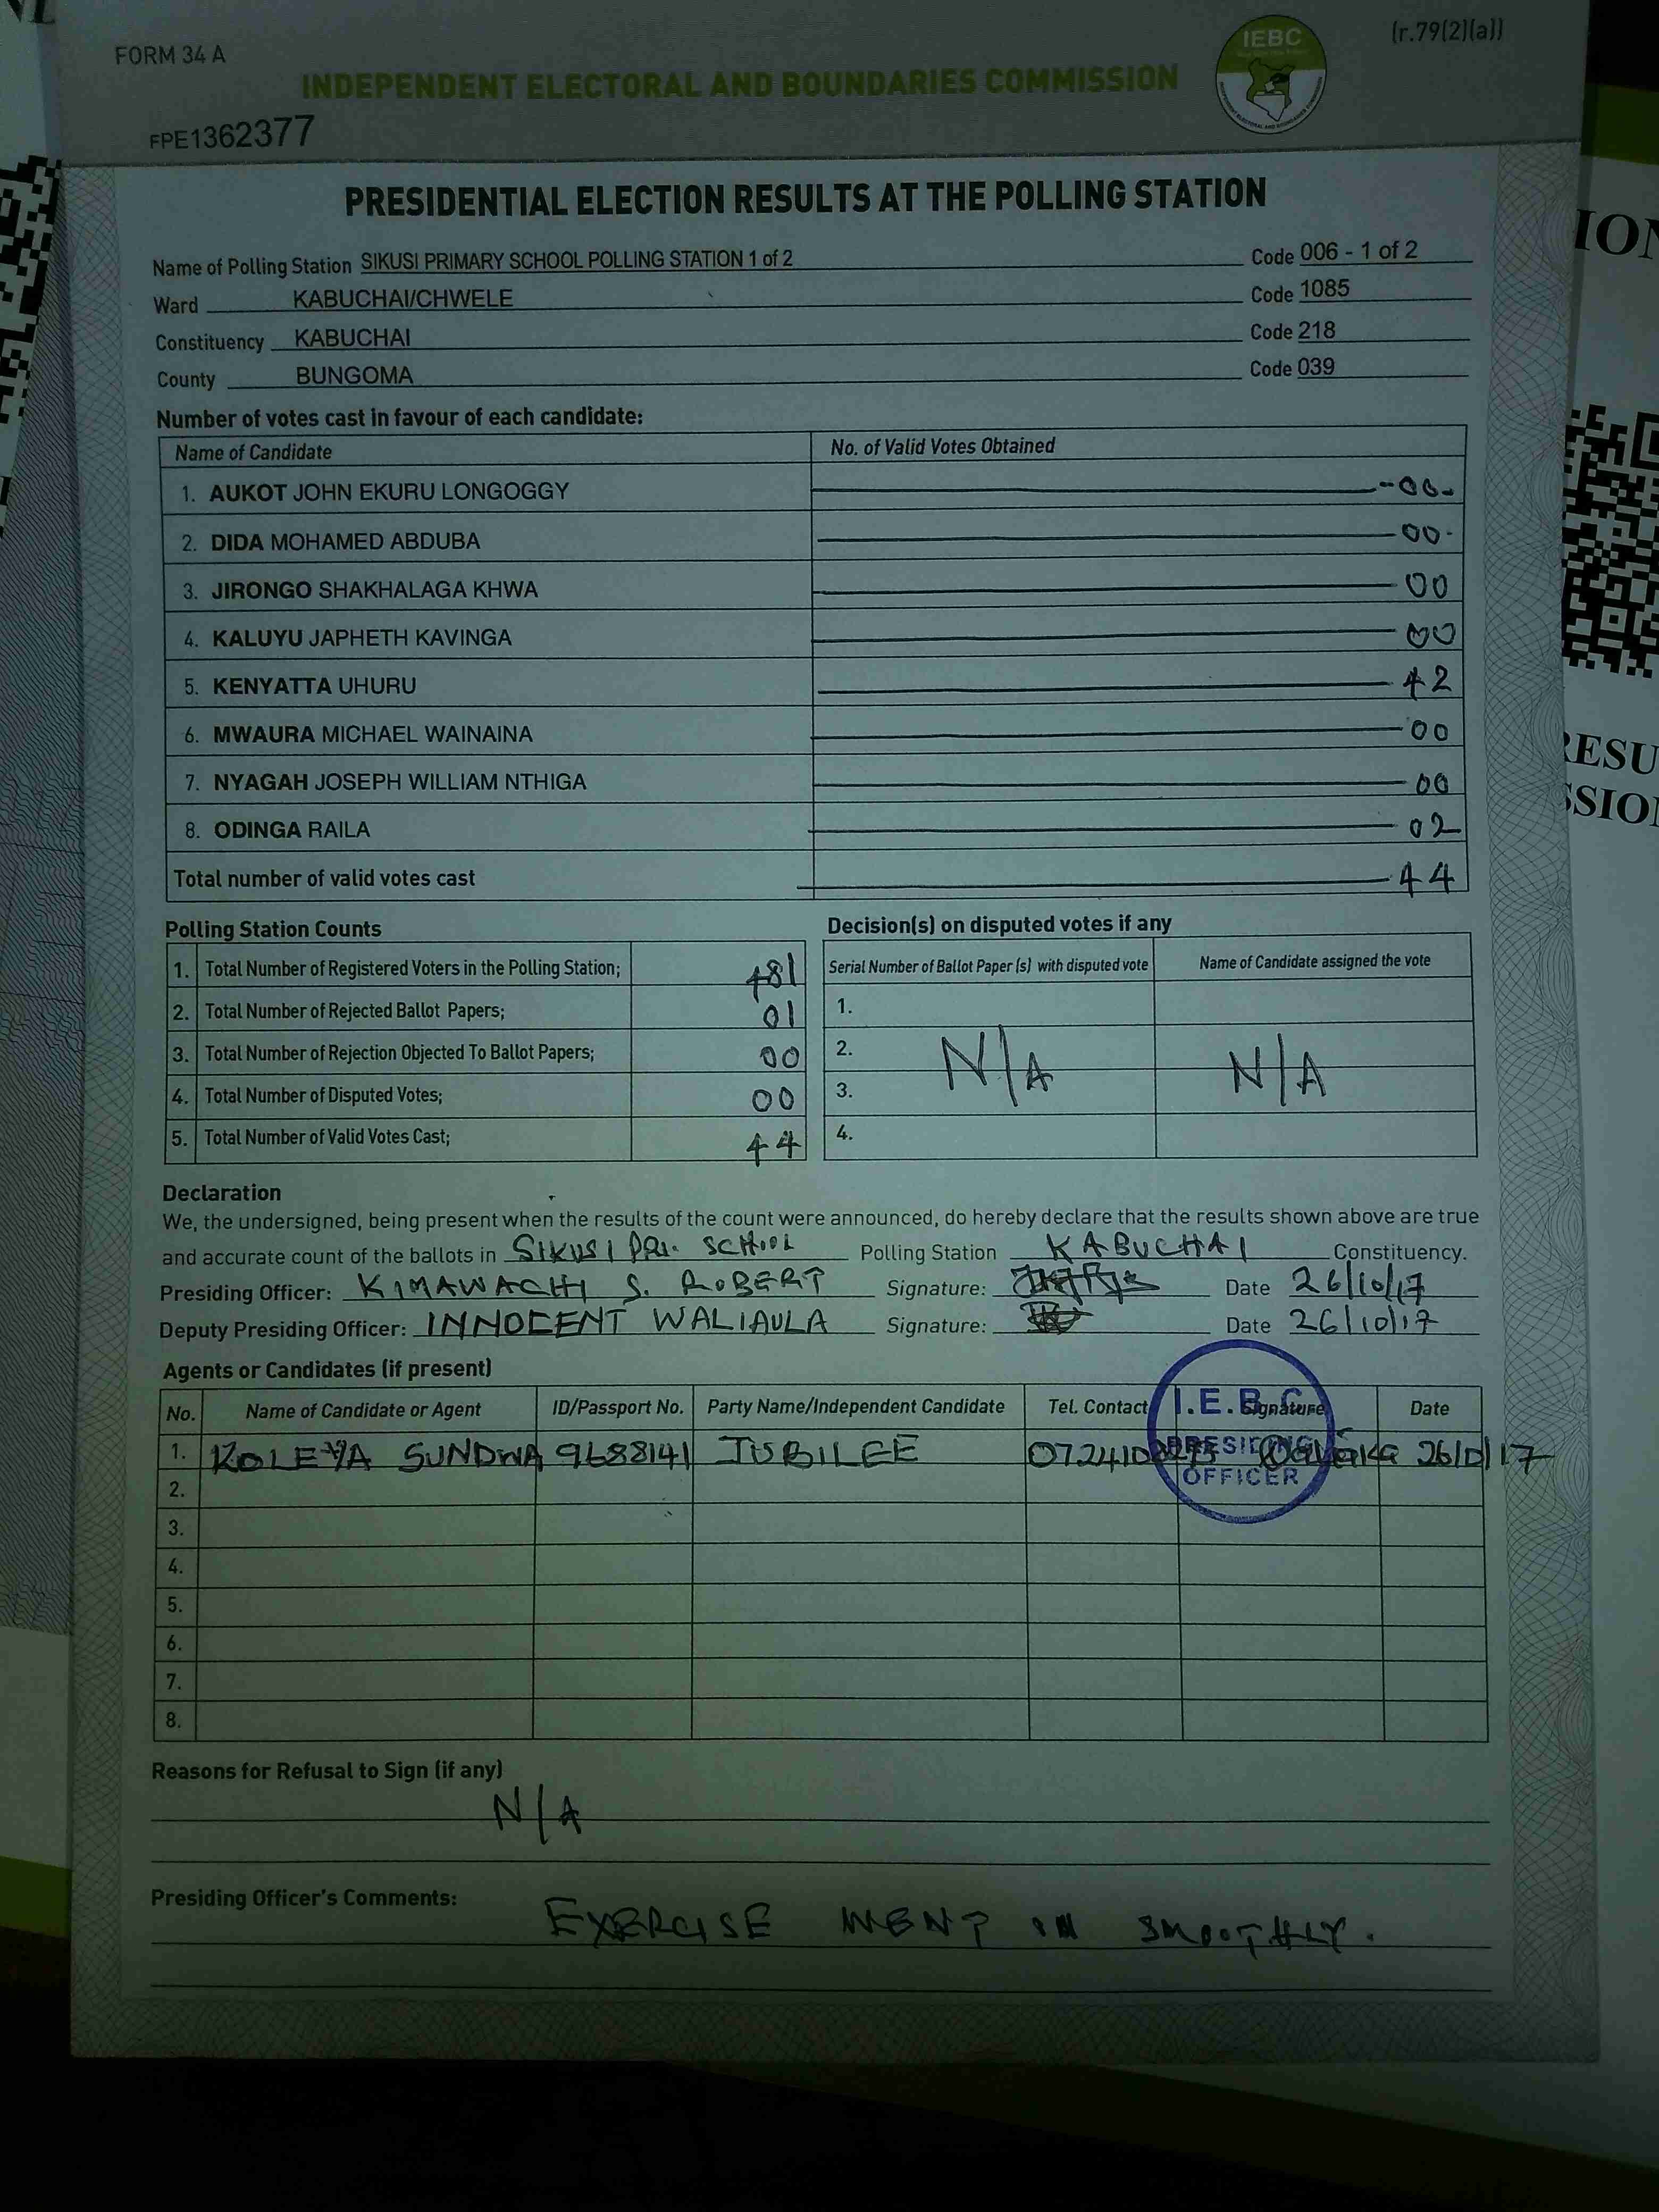 FORM 34 A
(r.79(2)(a))
IEBC
INDEPENDENT ELECTORAL AND BOUNDARIES COMMISSION
FPE1362377
PRESIDENTIAL ELECTION RESULTS AT THE POLLING STATION
Name of Polling Station SIKUSI PRIMARY SCHOOL POLLING STATION 1 of 2 Code 006 - 1 of 2
Ward KABUCHAI/CHWELE Code 1085
Constituency KABUCHAI Code 218
County BUNGOMA Code 039
Number of votes cast in favour of each candidate:
Name of Candidate No. of Valid Votes Obtained
1. AUKOT JOHN EKURU LONGOGGY 00
2. DIDA MOHAMED ABDUBA 00
3. JIRONGO SHAKHALAGA KHWA 00
4. KALUYU JAPHETH KAVINGA 00
5. KENYATTA UHURU 42
6. MWAURA MICHAEL WAINAINA 00
7. NYAGAH JOSEPH WILLIAM NTHIGA 00
8. ODINGA RAILA 02
Total number of valid votes cast 44
Polling Station Counts
1. Total Number of Registered Voters in the Polling Station; 481
2. Total Number of Rejected Ballot Papers; 01
3. Total Number of Rejection Objected To Ballot Papers; 00
4. Total Number of Disputed Votes; 00
5. Total Number of Valid Votes Cast; 44
Decision(s) on disputed votes if any
Serial Number of Ballot Paper (s) with disputed vote Name of Candidate assigned the vote
1.
2. N/A N/A
3.
4.
Declaration
We, the undersigned, being present when the results of the count were announced, do hereby declare that the results shown above are true
and accurate count of the ballots in SIKUSI PRI. SCHOOL Polling Station KABUCHAI Constituency.
Presiding Officer: KIMAWACHI S. ROBERT Signature: Date 26/10/17
Deputy Presiding Officer: INNOCENT WALIAULA Signature: Date 26/10/17
Agents or Candidates (if present)
No. Name of Candidate or Agent ID/Passport No. Party Name/Independent Candidate Tel. Contact Signature Date
1. SUNDWA 9688141 JUBILEE 26/10/17
I.E.B.C
PRESIDING
OFFICER
2.
3.
4.
5.
6.
7.
8.
Reasons for Refusal to Sign (if any)
N/A
Presiding Officer's Comments:
EXERCISE WENT ON SMOOTHLY.
ION
RESU
SSION